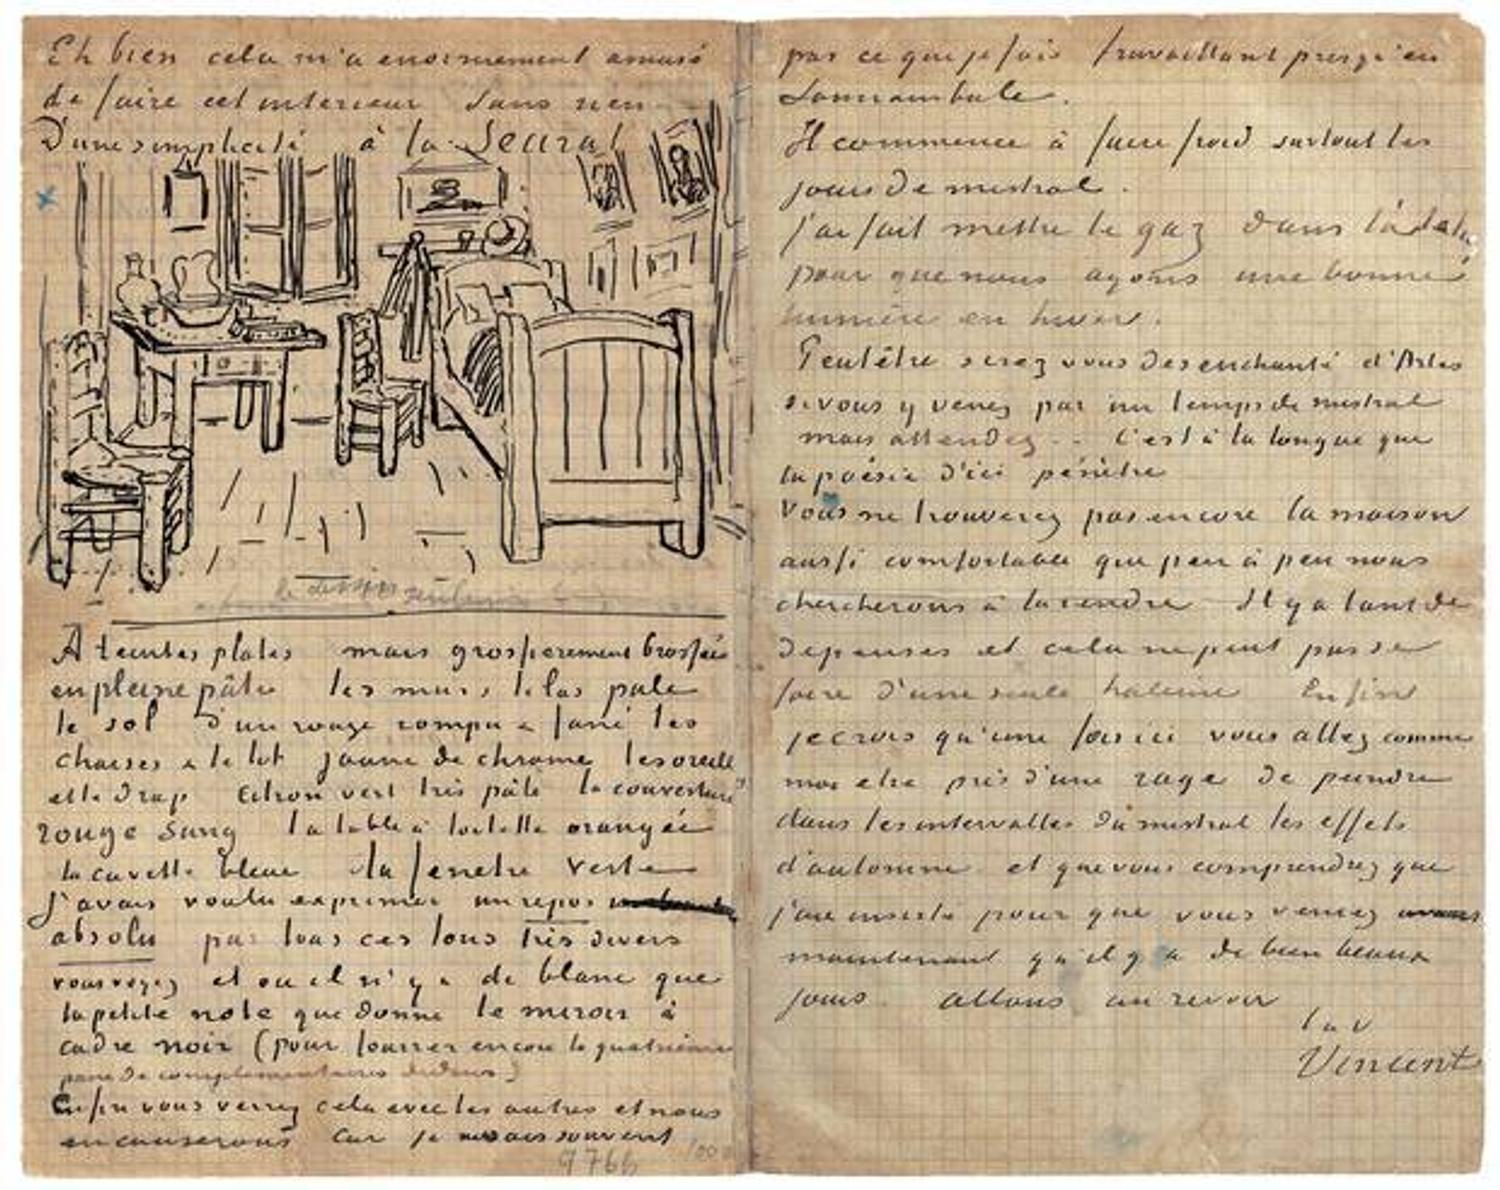 Eh bien cela m'a enormement amusé
de faire cet interieur sans rien
D'une simplicité à la Seurat
A teintes plates mais grossierement brossées
en pleine pâte les murs lilas pale
le sol d'un rouge rompu & fané les
chaises & le lit jaune de chrome les oreillers
et le drap citron vert très pâle la couverture
rouge sang la table à toilette orangée
la cuvette bleue la fenetre verte
J'avais voulu exprimer un repos
absolu par tous ces tons très divers
vous voyez et ou il n'y a de blanc que
la petite note que donne le miroir à
cadre noir (pour fourrer encore la quatrième
paire de complementaires dedans)
Enfin vous verrez cela avec les autres et nous
en causerons car je ne sais souvent
9766
pas ce que je fais travaillant presqu'en
somnambule.
Il commence à faire froid surtout les
jours de mistral.
J'ai fait mettre le gaz dans l'atelier
pour que nous ayons une bonne
lumière en hiver.
Peutêtre serez vous desenchanté d'Arles
si vous y venez par un temps de mistral
mais attendez - C'est à la longue que
la poésie d'ici pénètre
Vous ne trouverez pas encore la maison
aussi comfortable que peu à peu nous
chercherons à la rendre Il y a tant de
depenses et cela ne peut pas se
faire d'une seule haleine Enfin
je crois qu'une fois ici vous allez comme
moi etre pris d'une rage de peindre
dans les intervalles du mistral les effets
d'automne et que vous comprendrez que
j'aie insisté pour que vous veniez
maintenant qu'il y a de bien beaux
jours allons au revoir
t. à v.
Vincent